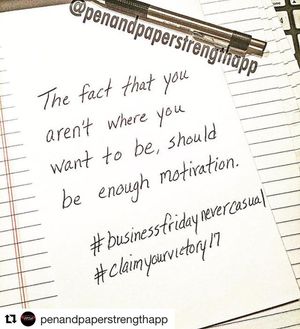 @penandpaperstrengthapp
The fact that you
aren't where you
want to be, should
be enough motivation.
#businessfridaynevercasual
#claimyourvictory17
penandpaperstrengthapp